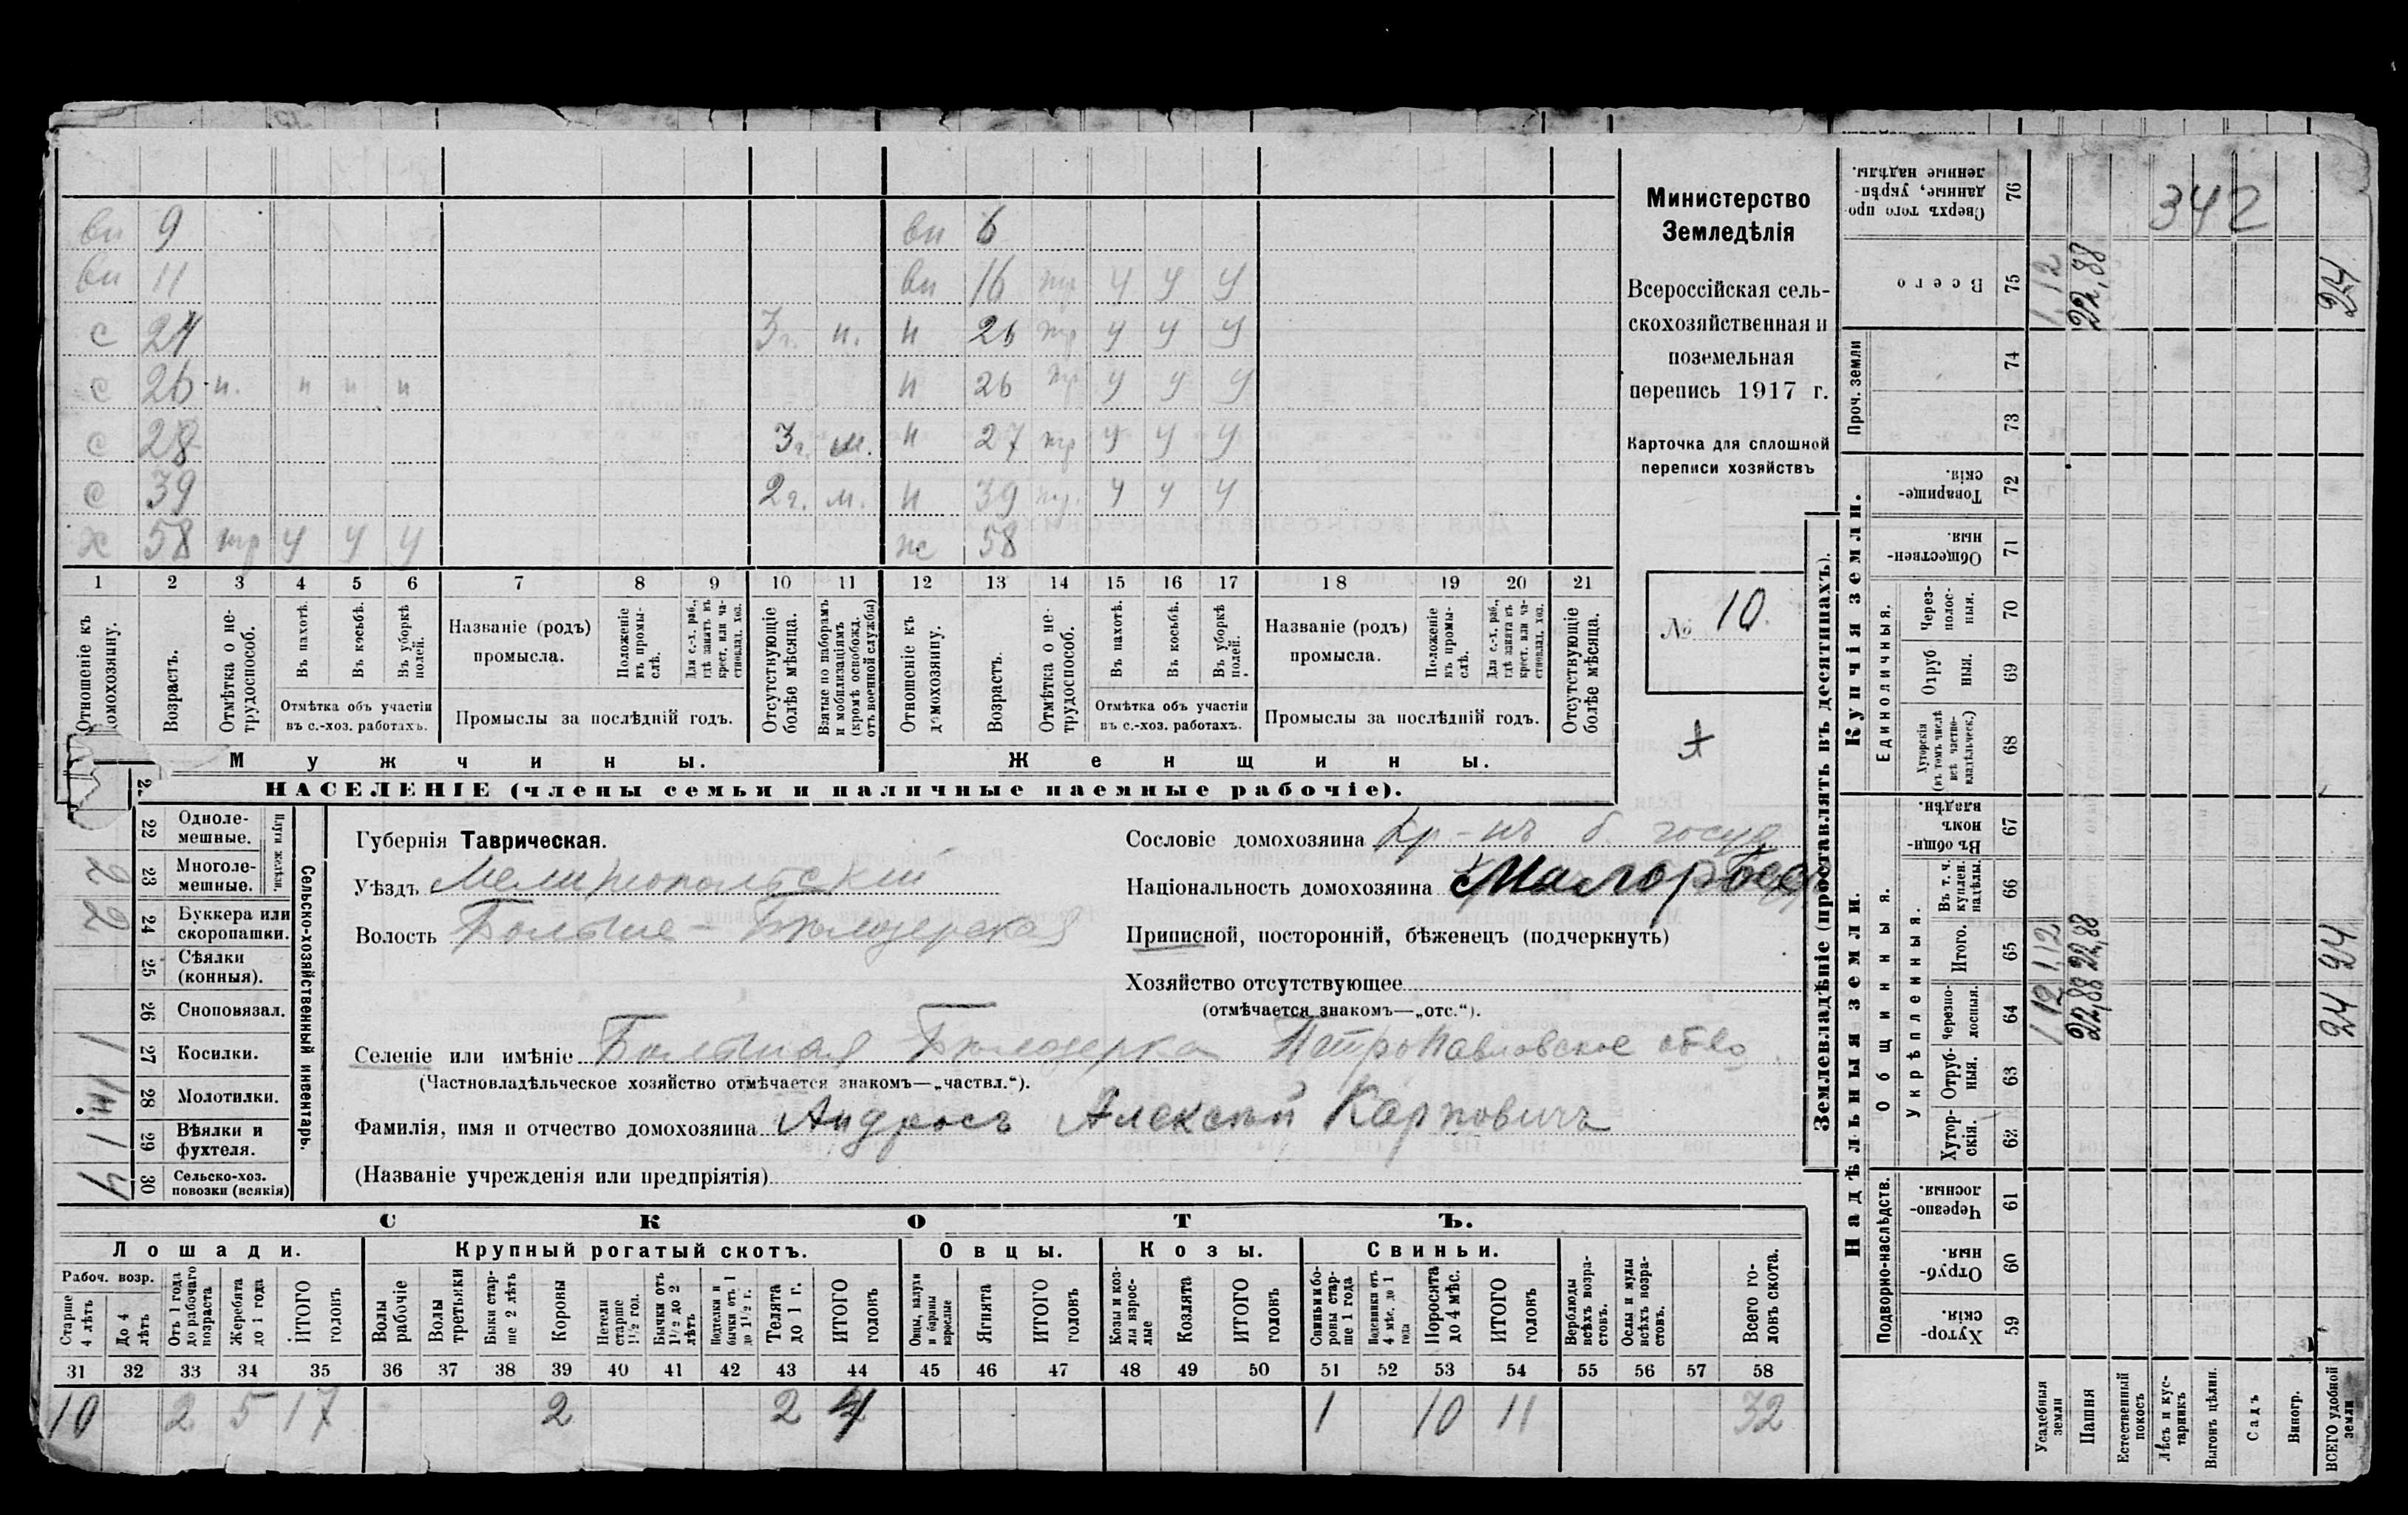 вн 9 вн 6
вн 11 вн 16 тр у у у
с 24 3 г. н. н 26 тр у у у
с 26 н. н н н н 26 тр у у у
с 28 3 г. м. н 27 тр у у у
с 39 2 г. м. н 39 тр. у у у
х 58 тр у у у ж 58
1 2 3 4 5 6 7 8 9 10 11 12 13 14 15 16 17 18 19 20 21
Отношеніе къ домохозяину.
Возрастъ.
Отмѣтка о не-
трудоспособ.
Въ пахотѣ.
Въ косьбѣ.
Въ уборкѣ
полей.
Отмѣтка объ участіи
въ с.-хоз. работахъ.
Названіе (родъ)
промысла.
Положеніе
въ промы-
слѣ.
Для с.-х. раб.,
гдѣ занятъ въ
крест. или ча-
стновлад. хоз.
Промыслы за послѣдній годъ.
Отсутствующіе
болѣе мѣсяца.
Взятые по наборамъ
и мобилизаціямъ
(кромѣ освобожд.
отъ военной службы)
Отношеніе къ
домохозяину.
Возрастъ.
Отмѣтка о не-
трудоспособ.
Въ пахотѣ.
Въ косьбѣ.
Въ уборкѣ
полей.
Отмѣтка объ участіи
въ с.-хоз. работахъ.
Названіе (родъ)
промысла.
Положеніе
въ промы-
слѣ.
Для с.-х. раб.,
гдѣ занята въ
крест. или ча-
стновлад. хоз.
Промыслы за послѣдній годъ.
Отсутствующіе
болѣе мѣсяца.
Мужчины. Женщины.
НАСЕЛЕНІЕ (члены семьи и наличные наемные рабочіе).
Министерство
Земледѣлія
Всероссійская сель-
скохозяйственная и
поземельная
перепись 1917 г.
Карточка для сплошной
переписи хозяйствъ
№ 10.
Сельско-хозяйственный инвентарь.
Плуги желѣзн.
22 Одноле-
мешные.
23 Многоле-
мешные. 2
24 Буккера или
скоропашки. 2
25 Сѣялки
(конныя).
26 Сноповязал.
27 Косилки. 1
28 Молотилки.
29 Вѣялки и
фухтеля. 1
30 Сельско-хоз.
повозки (всякія) 4
Губернія Таврическая.
Уѣздъ Мелитопольскій
Волость Больше-Бѣлозерская
Сословіе домохозяина кр-нъ б. госуд
Національность домохозяина Малоросс
Приписной, посторонній, бѣженецъ (подчеркнуть)
Хозяйство отсутствующее
(отмѣчается знакомъ—„отс.“).
Селеніе или имѣніе Большая Бѣлозерка Петропавловское об-во.
(Частновладѣльческое хозяйство отмѣчается знакомъ—„частвл.“).
Фамилія, имя и отчество домохозяина Андросъ Алексѣй Карповичъ
(Названіе учрежденія или предпріятія)
СКОТЪ.
Лошади. Крупный рогатый скотъ. Овцы. Козы. Свиньи.
Рабоч. возр.
Старше
4 лѣтъ
До 4
лѣтъ
Отъ 1 года
до рабочаго
возраста
Жеребята
до 1 года
ИТОГО
головъ
Волы
рабочіе
Волы
третьяки
Быки стар-
ше 2 лѣтъ
Коровы
Нетели
старше
1½ год.
Бычки отъ
1½ до 2
лѣтъ
Подтелки и
бычки отъ 1
до 1½ г.
Телята
до 1 г.
ИТОГО
головъ
Овцы, валухи
и бараны
взрослые
Ягнята
ИТОГО
головъ
Козы и коз-
лы взрос-
лые
Козлята
ИТОГО
головъ
Свиньи бо-
ровы стар-
ше 1 года
Подсвинки отъ
4 мѣс. до 1
года
Поросята
до 4 мѣс.
ИТОГО
головъ
Верблюды
всѣхъ возра-
стовъ.
Ослы и мулы
всѣхъ возра-
стовъ.
Всего го-
ловъ скота.
31 32 33 34 35 36 37 38 39 40 41 42 43 44 45 46 47 48 49 50 51 52 53 54 55 56 57 58
10 2 5 17 2 2 4 1 10 11 32
Землевладѣніе (проставлять въ десятинахъ).
Надѣльныя земли. Купчія земли.
Подворно-наслѣдств.
Общинныя.
Укрѣпленныя.
Единоличныя.
Проч. земли
Хутор-
скія. 59
Отруб-
ныя. 60
Черезпо-
лосныя. 61
Хутор-
скія. 62
Отруб-
ныя. 63
Черезпо-
лосныя. 64
Итого. 65
Въ т. ч.
куплен.
надѣлы. 66
Въ общин-
номъ
владѣн. 67
Хуторскія
(въ томъ числѣ
всѣ частно-
владѣльческ.) 68
Отруб
ныя. 69
Через-
полос-
ныя. 70
Обществен-
ныя. 71
Товарище-
скія. 72
73
74
Всего 75
Сверхъ того про-
данные, укрѣп-
ленные надѣлы. 76
342
Усадебныя
земли 1,12 1,12 1,12
Пашня 22,88 22,88 22,88
Естественный
покосъ
Лѣсъ и кус-
тарникъ
Выгонъ цѣлин.
Садъ
Виногр.
ВСЕГО удобной
земли 24 24 24